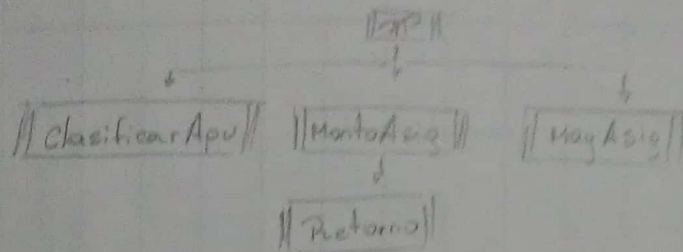 ClasificarApu MontoAsig MayAsig
Retorno